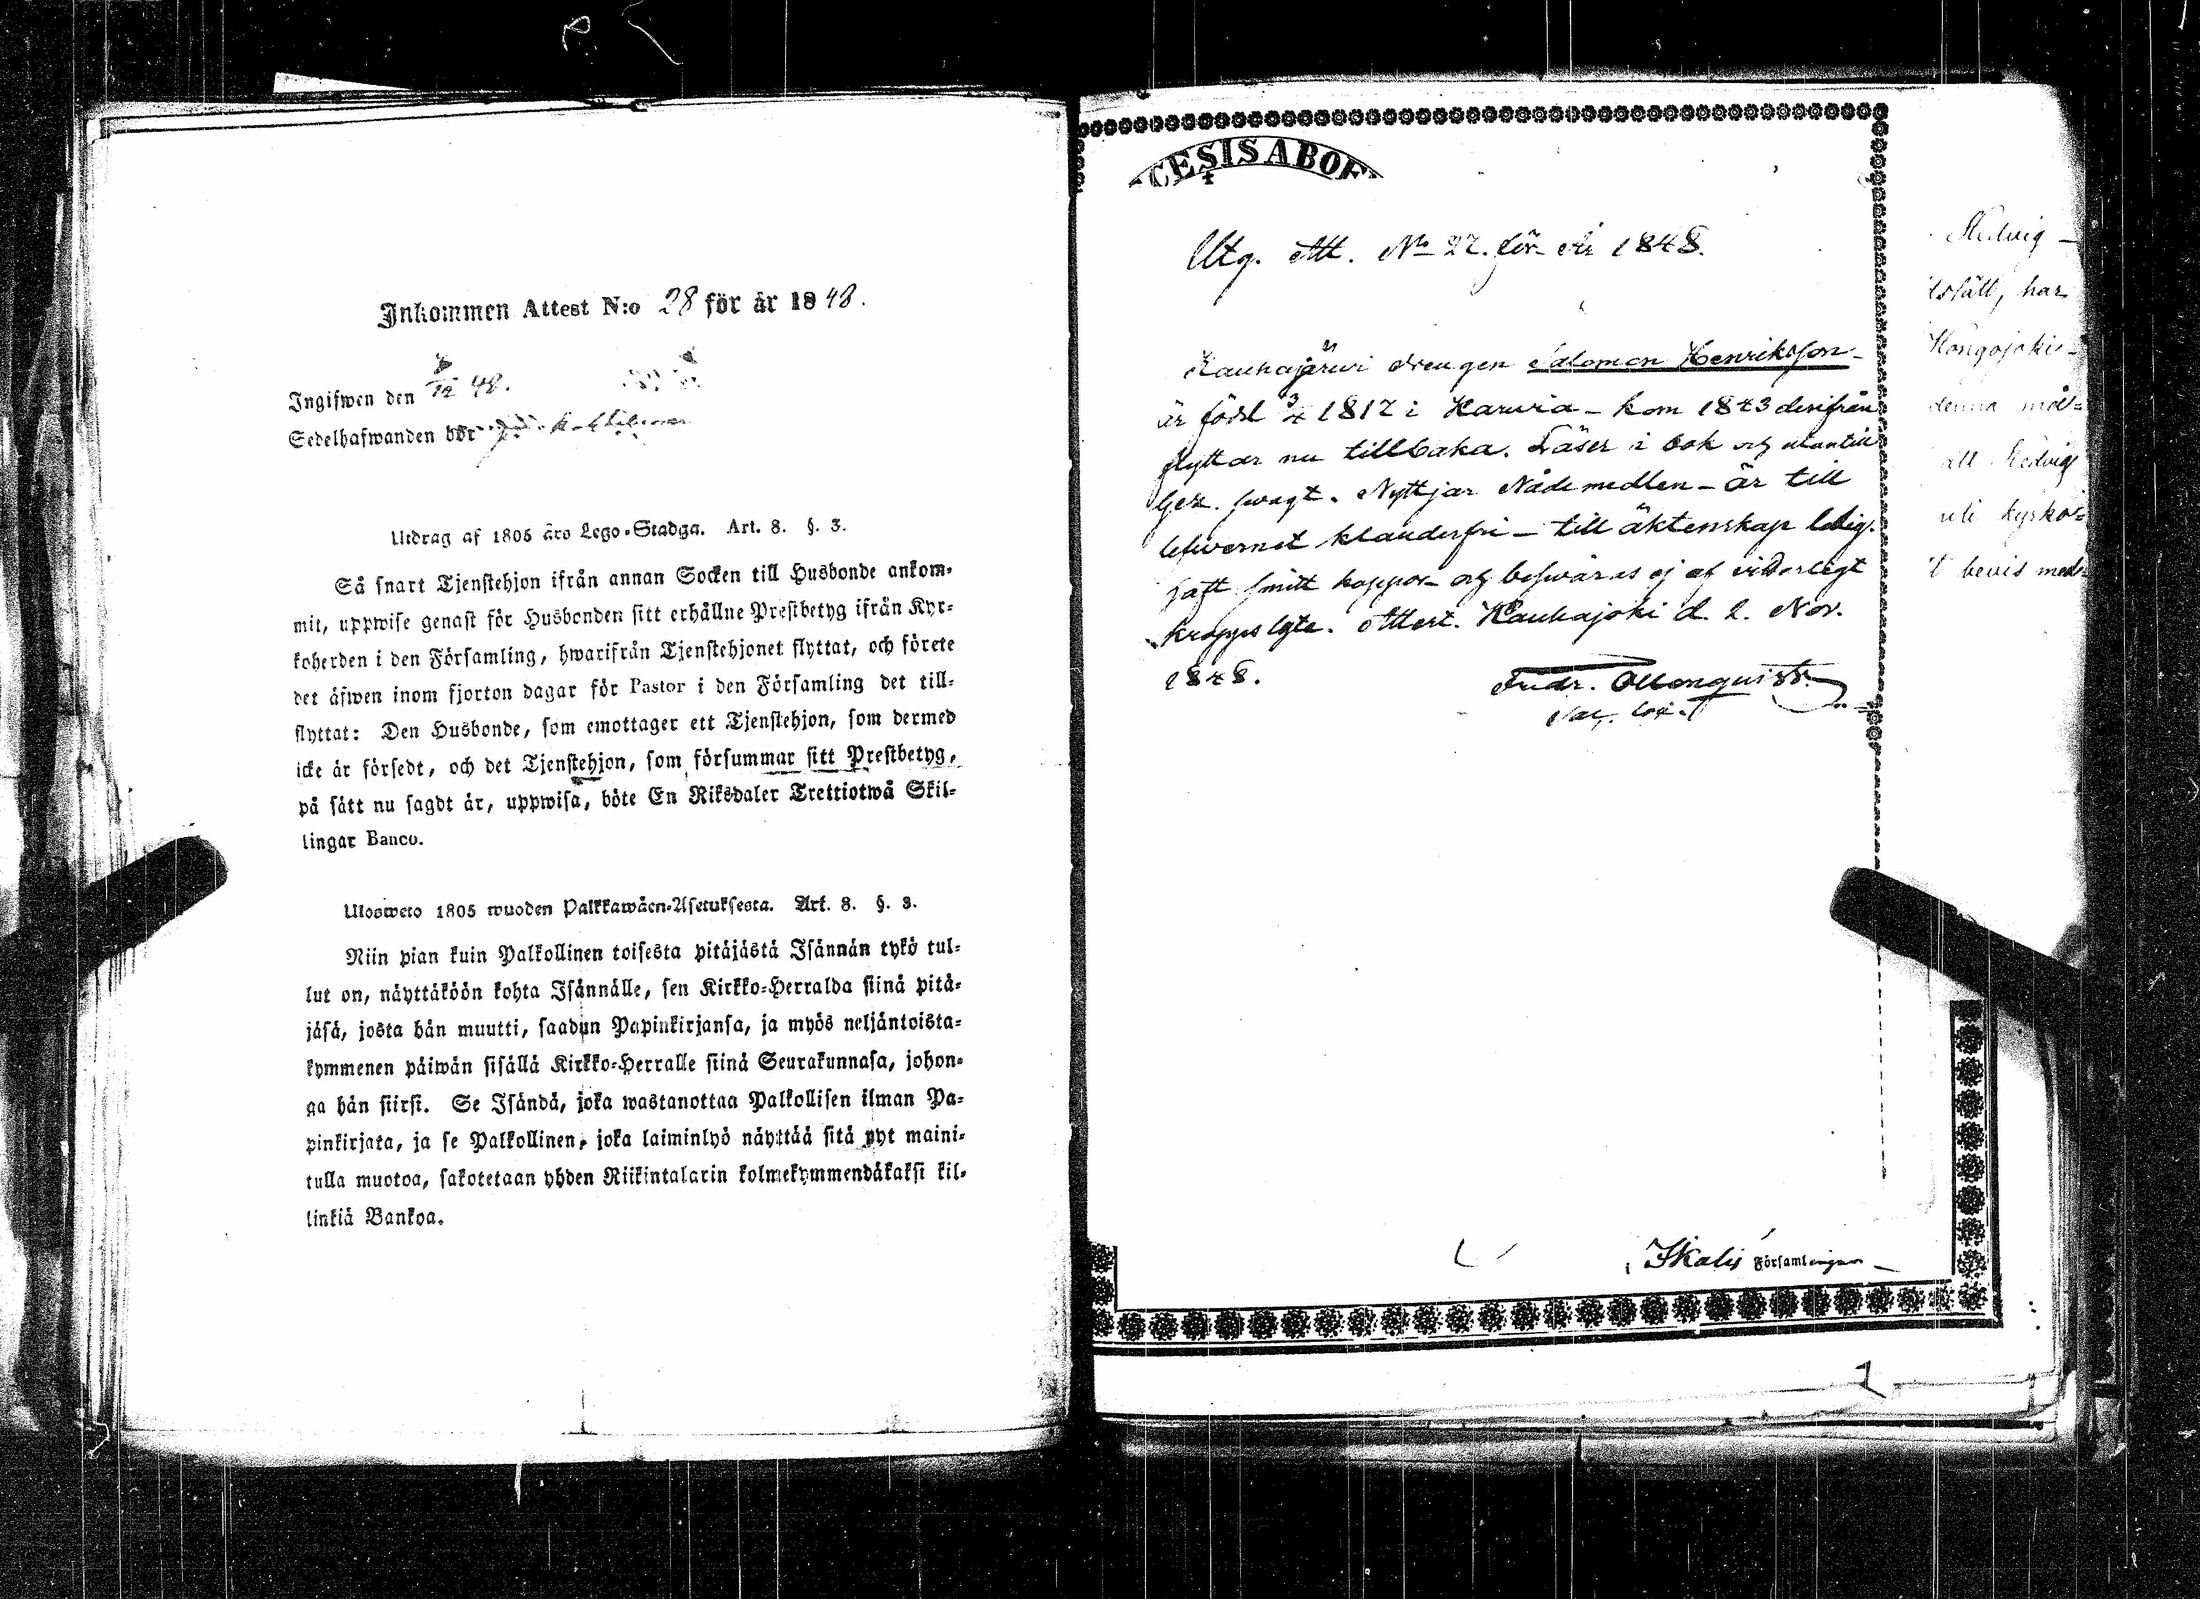 Inkommen Attest N:o 28 för år 1848.
Ingifwen den /12 48.
Sedelhafwanden bör
Utdrag af 1805 års Lego-Stadga. Art. 8. §. 3.
Så snart Tjenstehjon ifrån annan Socken till Husbonde ankom-
mit, uppwise genast för Husbonden sitt erhållne Prestbetyg ifrån Kyr-
koherden i den Församling, hwarifrån Tjenstehjonet flyttat, och förete
det äfwen inom fjorton dagar för Pastor i den Församling det till-
flyttat: Den Husbonde, som emottager ett Tjenstehjon, som dermed
icke är försedt, och det Tjenstehjon, som försummar sitt Prestbetyg,
på sätt nu sagdt är, uppwisa, böte En Riksdaler Trettiotwå Skil-
lingar Banco.
Ulosweto 1805 wuoden Palkkawäen-Asetuksesta. Art. 8. §. 3.
Niin pian kuin Palkollinen toisesta pitäjästä Isännän tykö tul-
lut on, näyttäköön kohta Isännälle, sen Kirkko-Herralda siinä pitä-
jäsä, josta hän muutti, saadun Papinkirjansa, ja myös neljäntoista-
kymmenen päiwän sisällä Kirkko-Herralle siinä Seurakunnasa, johon-
ga hän siirsi. Se Isändä, joka wastanottaa Palkollisen ilman Pa-
pinkirjata, ja se Palkollinen, joka laiminlyö näyttää sitä nyt maini-
tulla muotoa, sakotetaan yhden Riikintalarin kolmekymmendäkaksi kil-
linkiä Bankoa.
CESIS ABOE
Utg. Att. No 27. för År 1848.
Kauhajärwi Drengen Salomon Henriksson
är född 3/4 1817 i Karwia - kom 1843 derifrån
flyttar nu tillbaka. Läser i bok och utantill
Gez. swagt. Nyttjar Nådemedlen - är till
lefwernet klanderfri - till äktenskap ledig.
haft smitt koppor och beswäras ej af widerligt
kroppslyte. Attest. Kauhajoki d. 2. Nov.
1848.
Fredr. Ollonquist
Sac. loci.
i Ikalis Församlingen
Hedvig
har
Kongojoki
denna mål-
att Hedvig
uti kyrko-
t bevis med